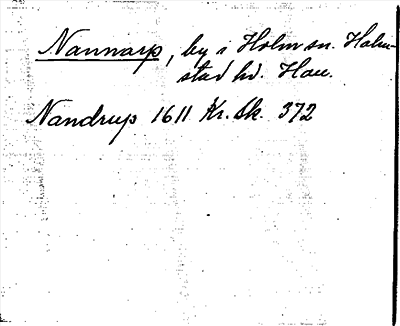 Nannarp, by i Holm sn. Halm-
stad hd. Hall.
Nandrup 1611 Kr. Sk. 372